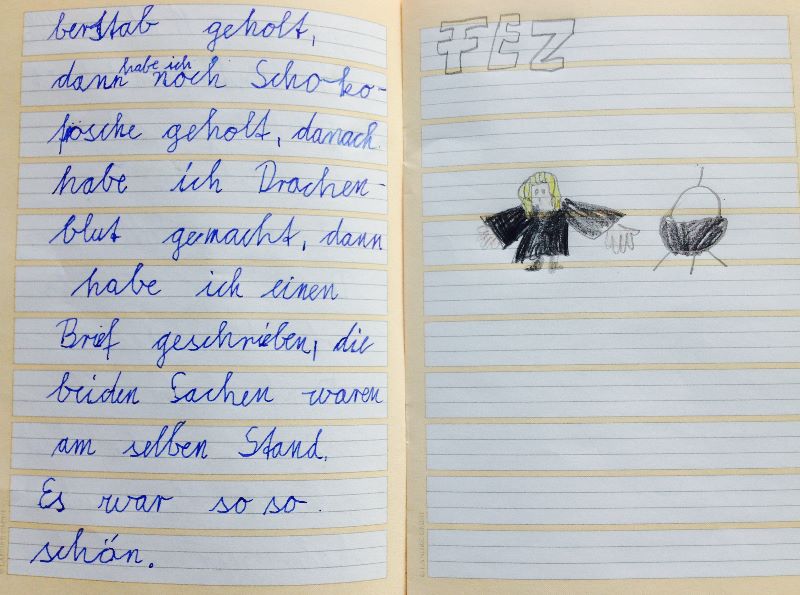 berstab geholt,
dann habe ich noch Schoko-
fösche geholt, danach
habe ich Drachen-
blut gemacht, dann
habe ich einen
Brief geschrieben, die
beiden Sachen waren
am selben Stand.
Es war so so
schön.
FEZ